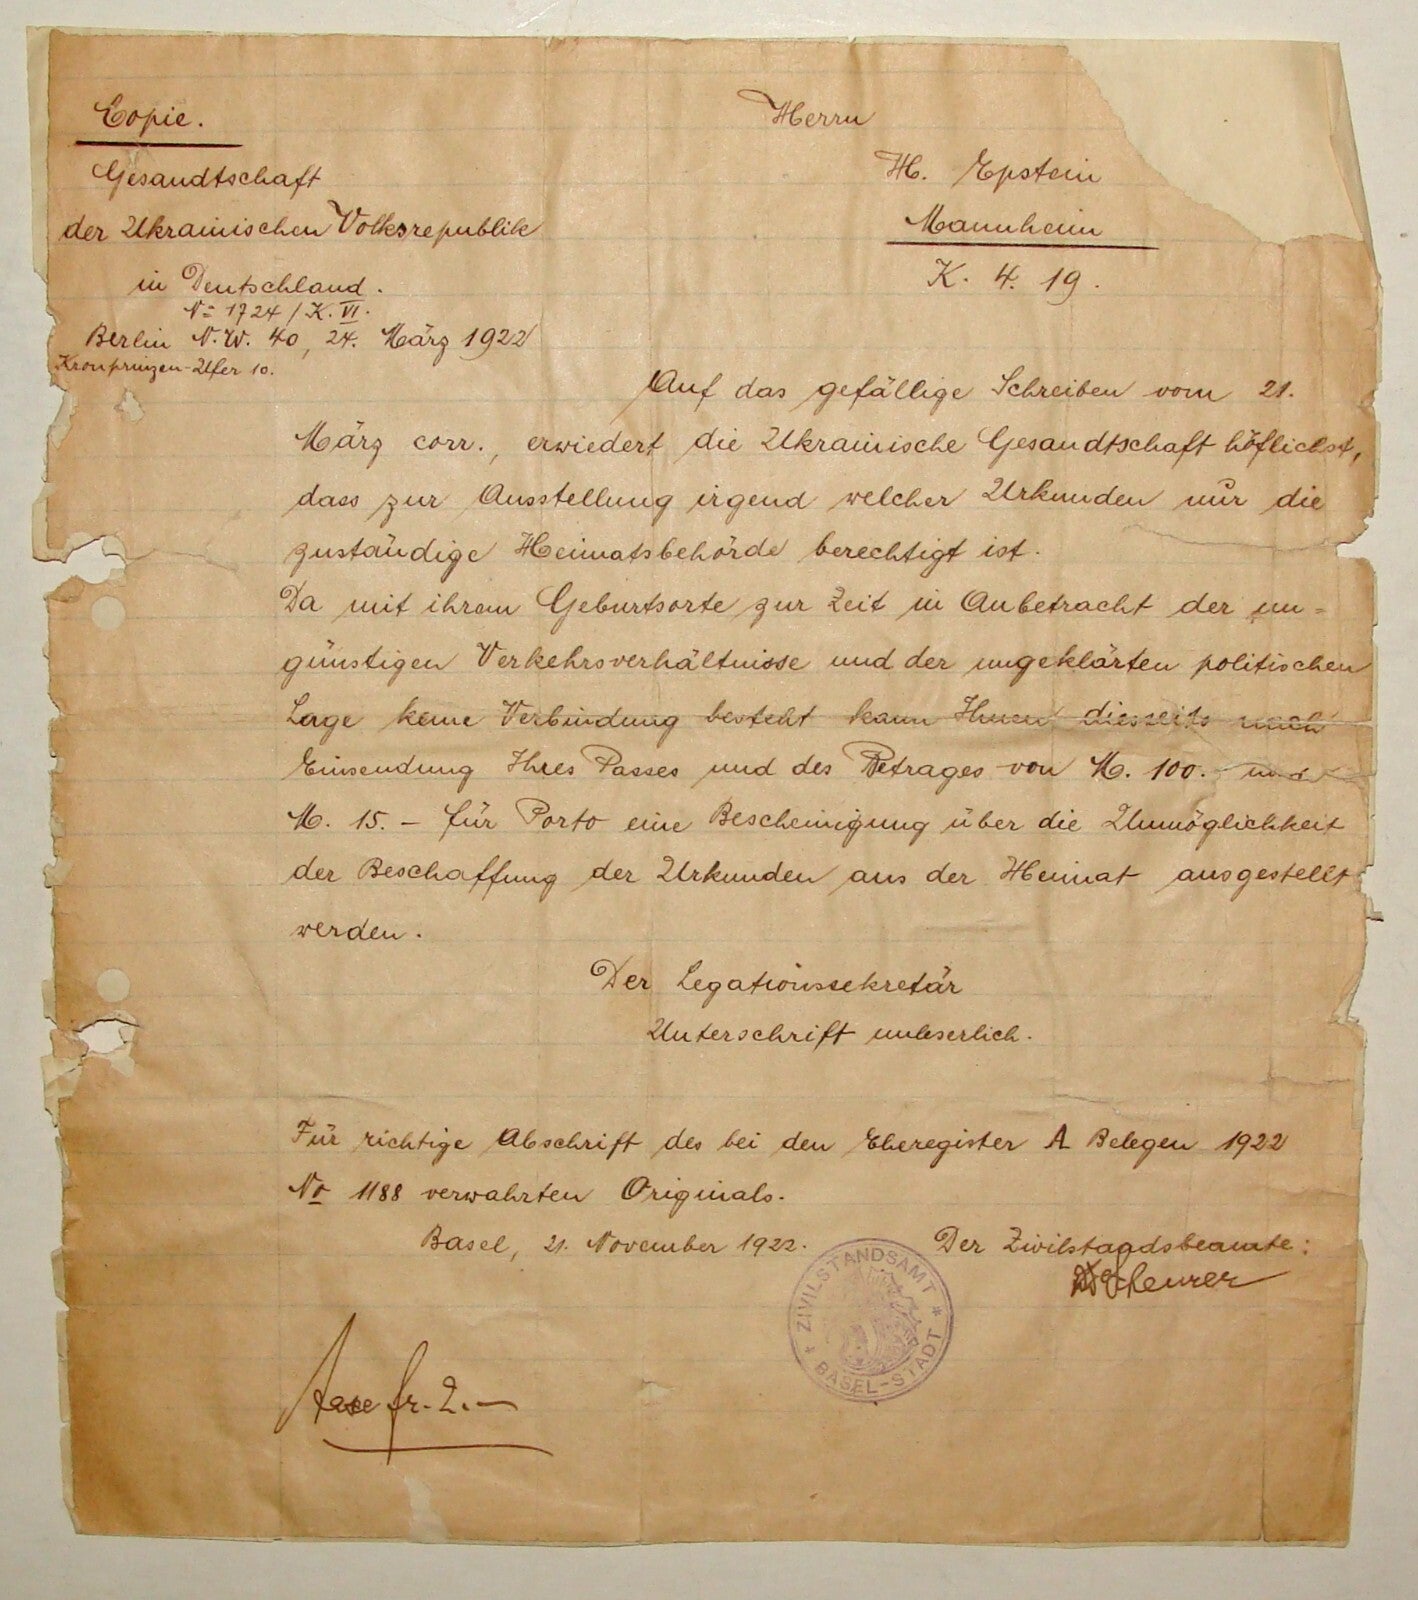 Copie.
Gesandtschaft
der Ukrainischen Volksrepublik
in Deutschland.
No 1724 / K. VI.
Berlin N.W. 40, 24. März 1922
Kronprinzen-Ufer 10.
Herrn
H. Epstein
Mannheim
K. 4. 19.
Auf das gefällige Schreiben vom 21.
März corr., erwiedert die Ukrainische Gesandtschaft höflichst,
dass zur Ausstellung irgend welcher Urkunden nur die
zuständige Heimatsbehörde berechtigt ist.
Da mit ihrem Geburtsorte zur Zeit in Anbetracht der un=
günstigen Verkehrsverhältnisse und der ungeklärten politischen
Lage keine Verbindung besteht kann Ihnen diesseits nach
Einsendung Ihres Passes und des Betrages von M. 100.- und
M. 15. – für Porto eine Bescheinigung über die Unmöglichkeit
der Beschaffung der Urkunden aus der Heimat ausgestellt
werden.
Der Legationssekretär
Unterschrift unleserlich.
Für richtige Abschrift des bei den Eheregister A Belegen 1922
No 1188 verwahrten Originals.
Basel, 21. November 1922.
Der Zivilstandsbeamte:
Scheurer
ZIVILSTANDSAMT * BASEL-STADT *
Taxe fr. 2.–